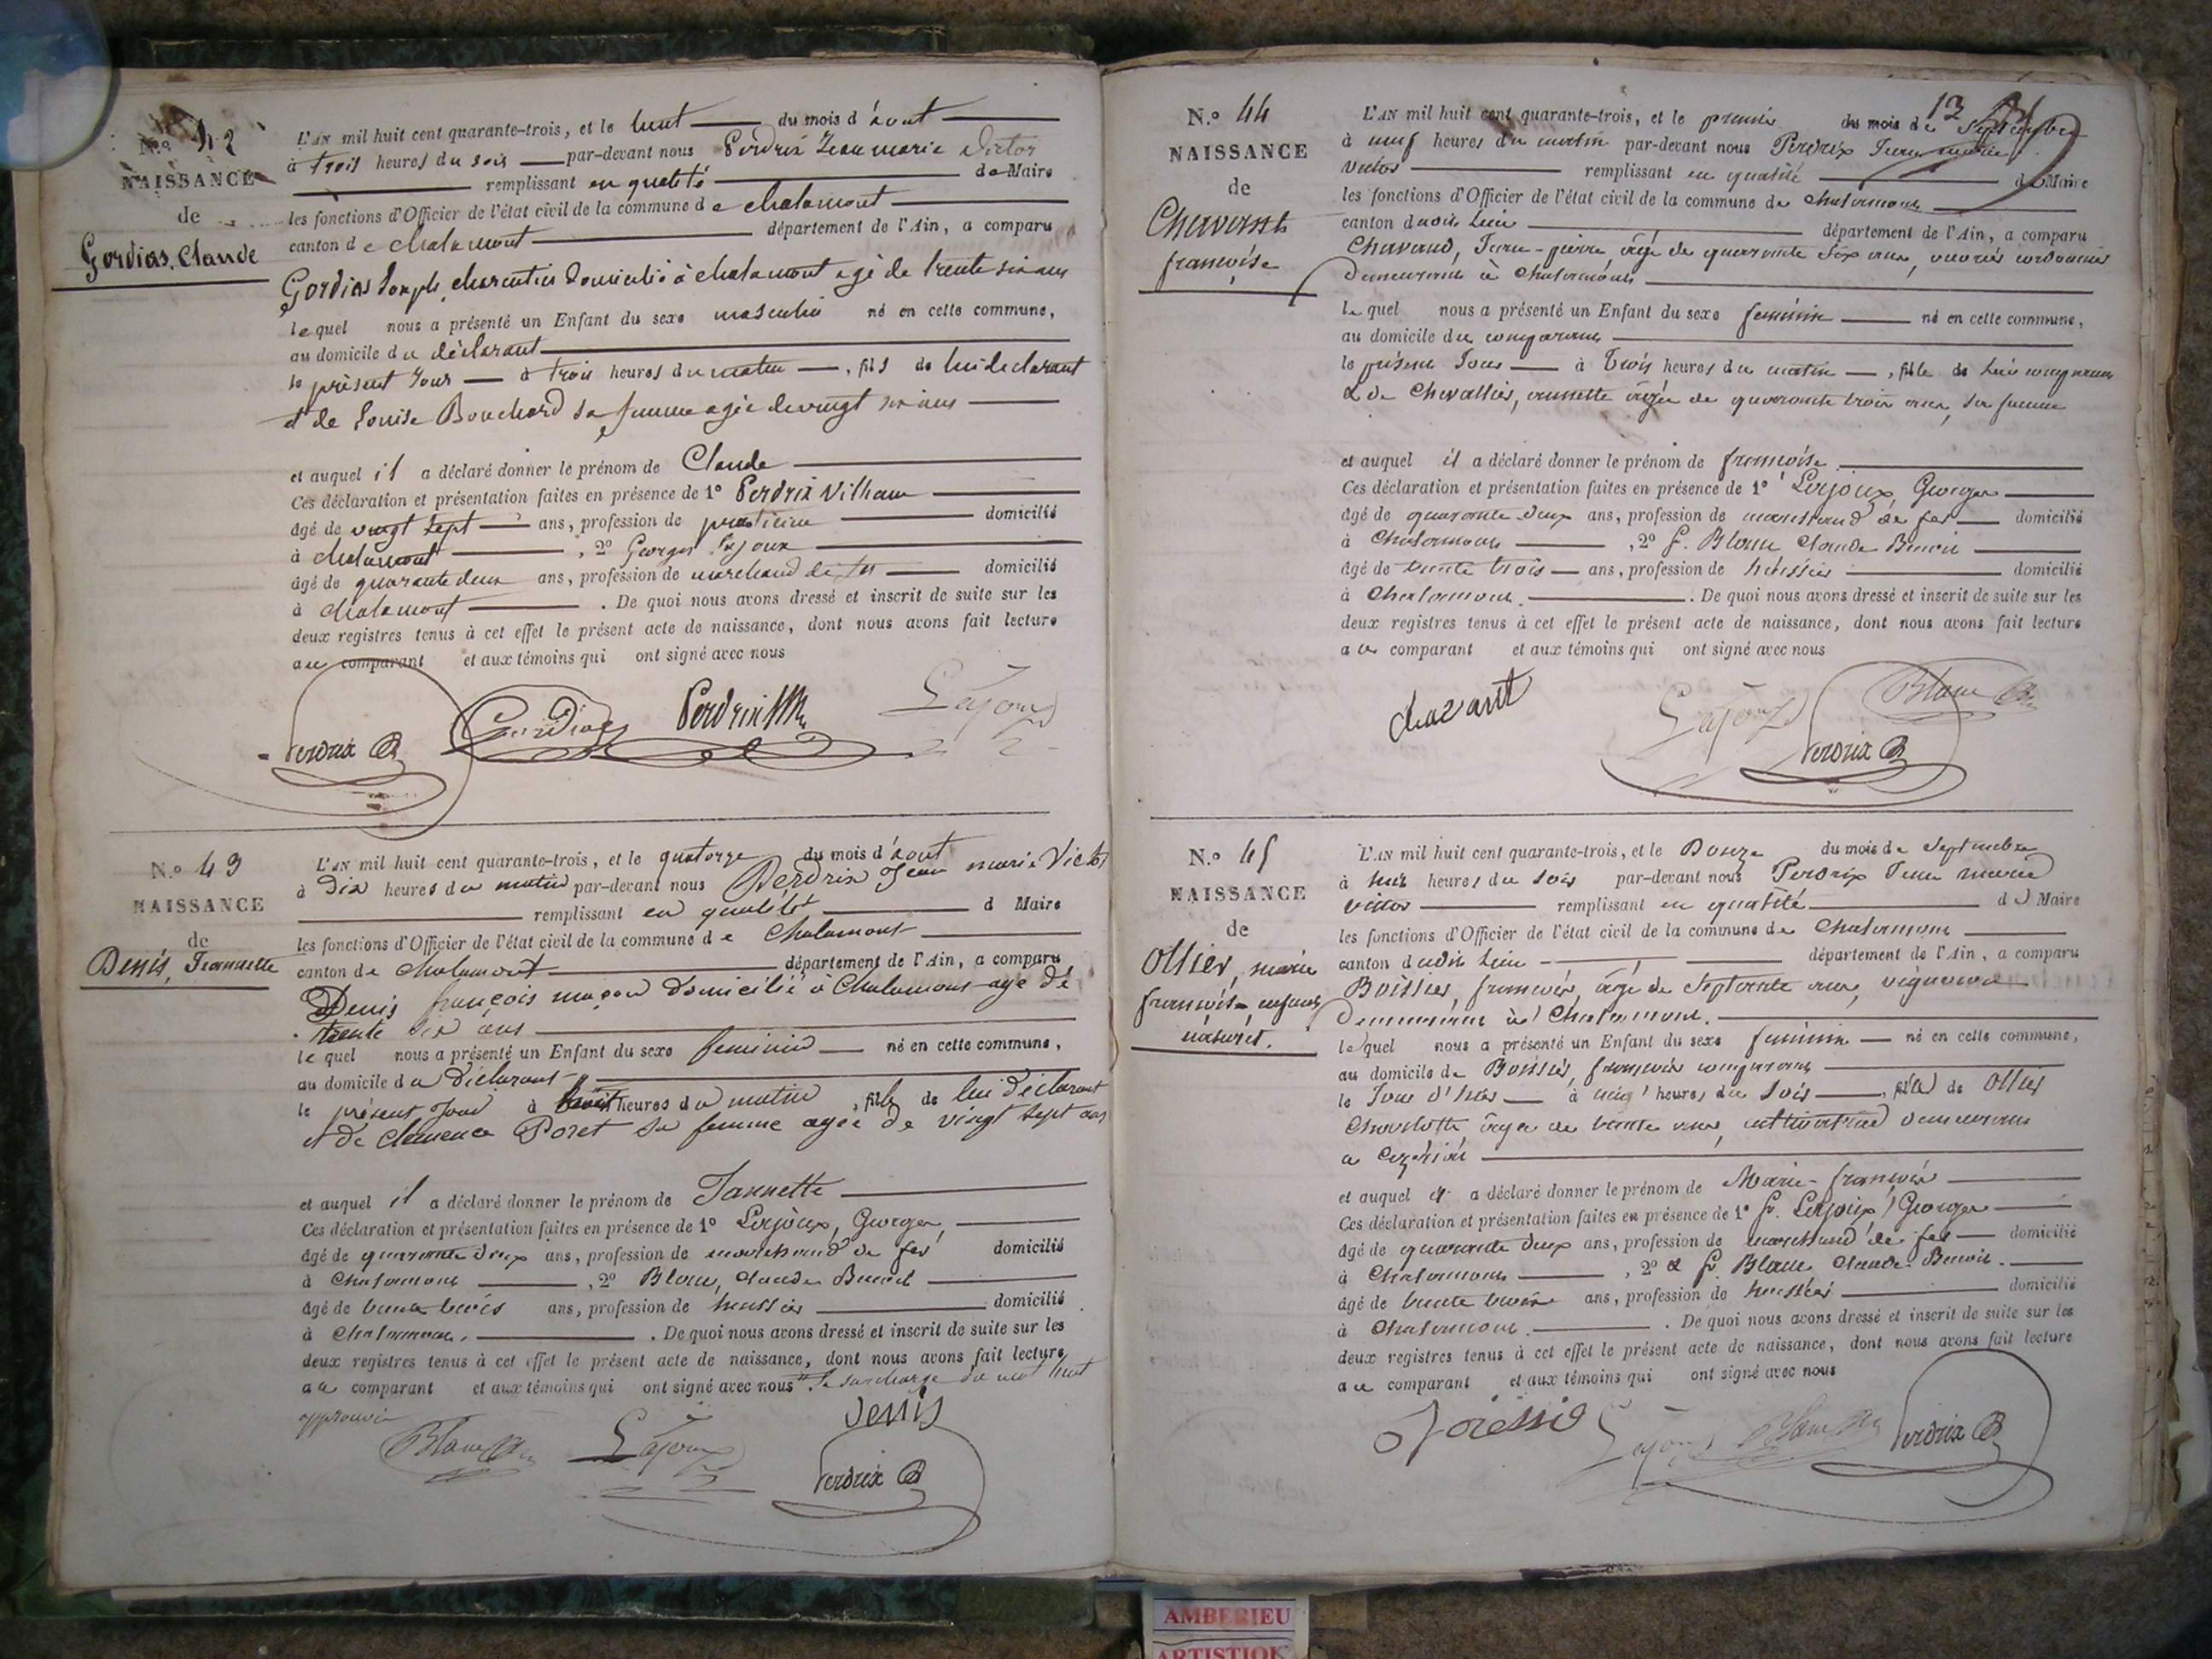 N.º 42
NAISSANCE
de
Gordias, Claude
L'AN mil huit cent quarante-trois, et le huit du mois d'août
à trois heures du soir par-devant nous Perdrix Jean marie Victor
remplissant en qualité de Maire
les fonctions d'Officier de l'état civil de la commune de chalamont
canton de chalamont département de l'Ain, a comparu
Gordias Joseph, charentier domicilié à chalamont agé de trente six ans
lequel nous a présenté un Enfant du sexe masculin né en cette commune,
au domicile du déclarant
le présent Jour à trois heures du matin, fils de lui déclarant
et de Louise Bouchard sa femme agée de vingt six ans
et auquel il a déclaré donner le prénom de Claude
Ces déclaration et présentation faites en présence de 1º Perdrix
âgé de vingt sept ans, profession de praticien domicilié
à chalamont, 2º Georges Lajoux
âgé de quarante deux ans, profession de marchand de fer domicilié
à chalamont. De quoi nous avons dressé et inscrit de suite sur les
deux registres tenus à cet effet le présent acte de naissance, dont nous avons fait lecture
au comparant et aux témoins qui ont signé avec nous
Perdrix Gordias Perdrix Lajoux
N.º 43
NAISSANCE
de
Denis, Jeannette
L'AN mil huit cent quarante-trois, et le quatorze du mois d'août
à Dix heures du matin par-devant nous Perdrix Jean marie Victor
remplissant en qualité d Maire
les fonctions d'Officier de l'état civil de la commune de Chalamont
canton de Chalamont département de l'Ain, a comparu
Denis françois maçon domicilié à Chalamont agé de
trente six ans
lequel nous a présenté un Enfant du sexe feminin né en cette commune,
au domicile du Déclarant
le présent Jour à huit heures du matin, fille de lui déclarant
et de Clemence Poret sa femme agée de vingt sept ans
et auquel il a déclaré donner le prénom de Jannette
Ces déclaration et présentation faites en présence de 1º Lajoux, Georges,
âgé de quarante deux ans, profession de marchand de fer domicilié
à Chalamont, 2º Blanc, Claude Benoit
âgé de trente trois ans, profession de huissier domicilié
à Chalamont. De quoi nous avons dressé et inscrit de suite sur les
deux registres tenus à cet effet le présent acte de naissance, dont nous avons fait lecture
au comparant et aux témoins qui ont signé avec nous "la surcharge du mot huit
approuvée
Blanc Lajoux Denis
Perdrix
13
N.º 44
NAISSANCE
de
Chavant
françoise
L'AN mil huit cent quarante-trois, et le premier du mois de Septembre
à neuf heures du matin par-devant nous Perdrix Jean marie
victor remplissant en qualité de Maire
les fonctions d'Officier de l'état civil de la commune de Chalamont
canton dudit lieu département de l'Ain, a comparu
Chavand, Jean-pierre âgé de quarante six ans, ouvrier cordonnier
Demeurant à Chalamont
lequel nous a présenté un Enfant du sexe feminin né en cette commune,
au domicile du comparant
le présent Jour à Trois heures du matin, fille de lui comparant
& de Chevallier, annette âgée de quarante trois ans, sa femme
et auquel il a déclaré donner le prénom de françoise
Ces déclaration et présentation faites en présence de 1º Lajoux, Georges
âgé de quarante deux ans, profession de marchand de fer domicilié
à Chalamont, 2º f. Blanc Claude Benoit
âgé de trente trois ans, profession de huissier domicilié
à Chalamont. De quoi nous avons dressé et inscrit de suite sur les
deux registres tenus à cet effet le présent acte de naissance, dont nous avons fait lecture
au comparant et aux témoins qui ont signé avec nous
chavant Lajoux Blanc
Perdrix
N.º 45
NAISSANCE
de
Ollier, marie
françoise enfant
naturel.
L'AN mil huit cent quarante-trois, et le Douze du mois de Septembre
à heures du soir par-devant nous Perdrix Jean marie
victor remplissant en qualité de Maire
les fonctions d'Officier de l'état civil de la commune de Chalamont
canton dudit lieu département de l'Ain, a comparu
Boissier, françois, âgé de Septante ans, vigneron
Demeurant à Chalamont.
lequel nous a présenté un Enfant du sexe feminin né en cette commune,
au domicile de Boissier, françois comparant
le Jour d'hier à heures du soir, fille de Ollier
Charlotte âgée de trente ans, cultivatrice demeurant
a
et auquel il a déclaré donner le prénom de Marie-françoise
Ces déclaration et présentation faites en présence de 1º Lajoux, Georges
âgé de quarante deux ans, profession de marchand de fer domicilié
à Chalamont, 2º Blanc Claude Benoit.
âgé de trente trois ans, profession de huissier domicilié
à Chalamont. De quoi nous avons dressé et inscrit de suite sur les
deux registres tenus à cet effet le présent acte de naissance, dont nous avons fait lecture
au comparant et aux témoins qui ont signé avec nous
Lajoux Blanc Perdrix
AMBERIEU
ARTISTIQUE